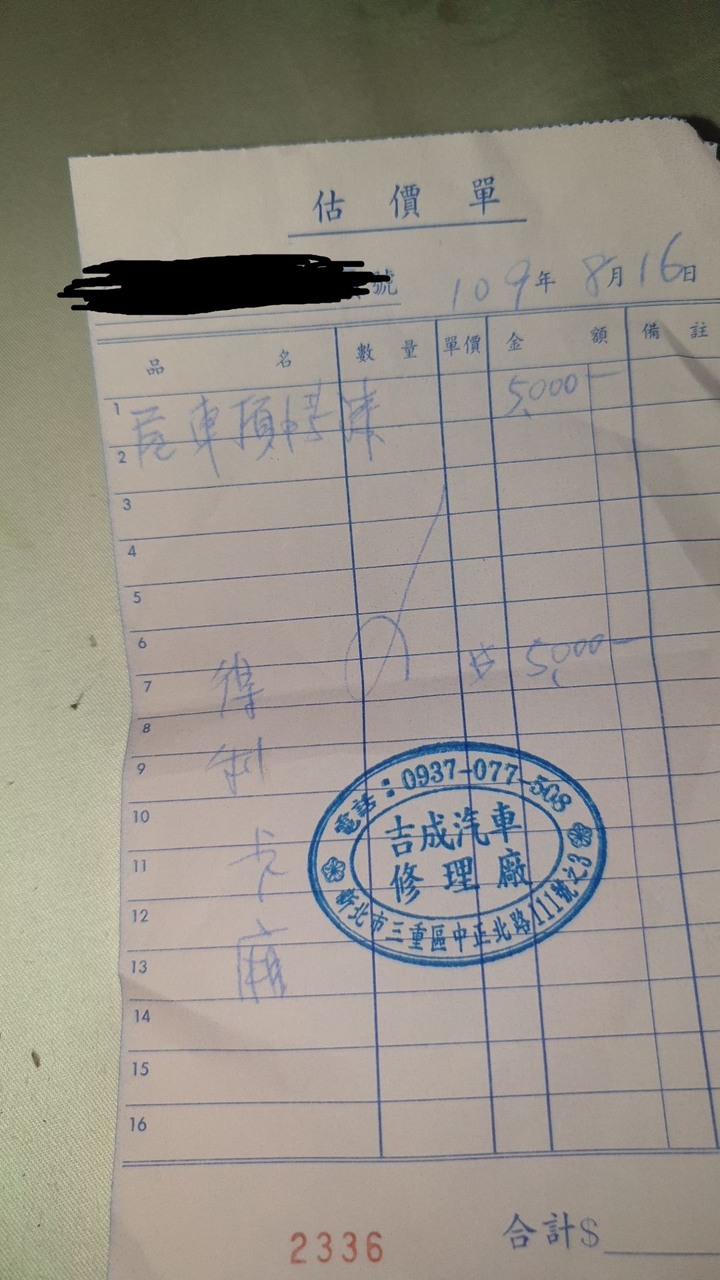 估價單
號 109年8月16日
品名 數量 單價 金額 備註
1 5,000-
2 車頂
3
4
5
6
7 $5,000-
8 得
9 利
10
11 卡
12
13
14
15
16
電話:0937-077-508
吉成汽車
修理廠
新北市三重區中正北路111號之3
2336 合計$